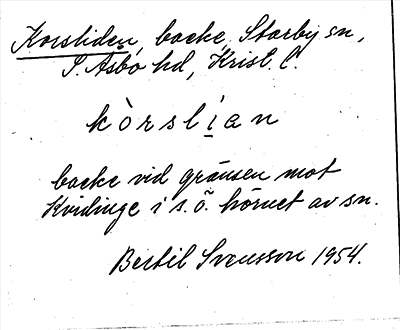 Korsliden, backe, Starby sn,
S. Åsbo hd, Krist. l.
kòrsli̠an
backe vid gränsen mot
Kvidinge i s.ö. hörnet av sn.
Bertil Svensson 1954.